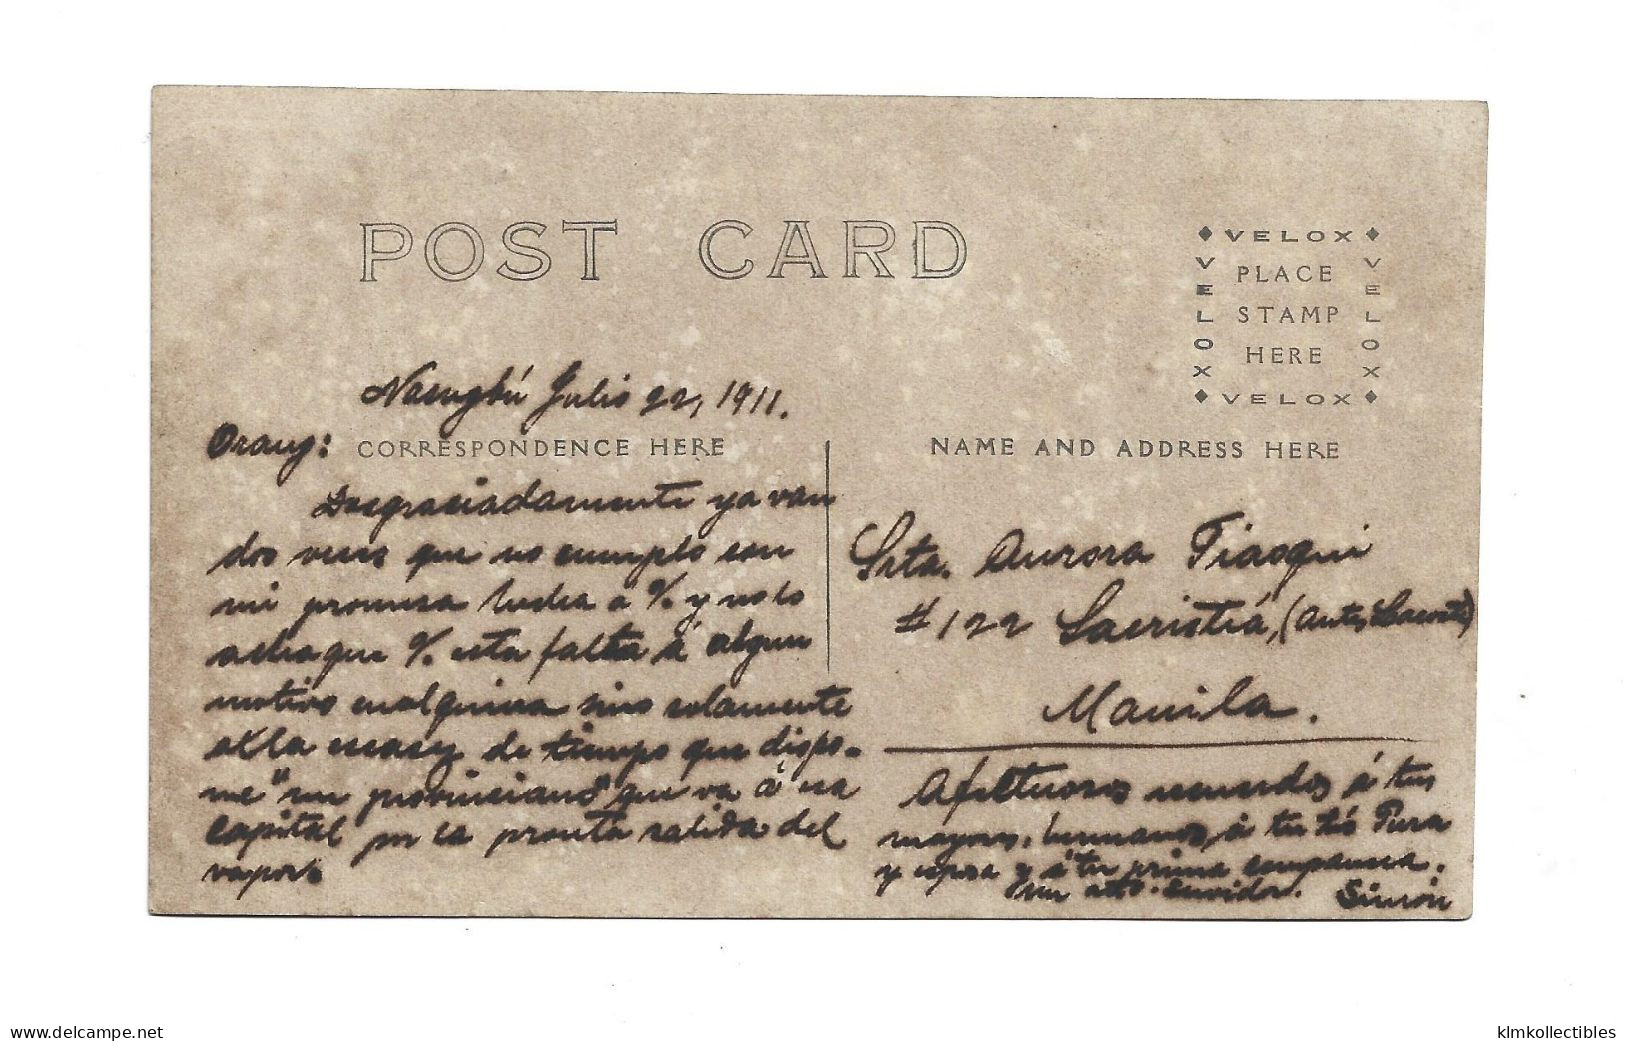 POST CARD
VELOX
VELOX
PLACE
STAMP
HERE
VELOX
VELOX
Nasugbú Julio 22, 1911.
Orang:
CORRESPONDENCE HERE
NAME AND ADDRESS HERE
Desgraciadamente ya van
dos veces que no cumplo con
mi promesa hecha a %. y no lo
achaque %. esta falta á algun
motivo cualquiera sino solamente
a la escasez de tiempo que dispo-
ne "un provinciano" que va á esa
Capital por la pronta salida del
vapor.
Srta. Aurora Tiaoqui
#122 Sacristía, (antes Lacoste)
Manila.
Afectuosos recuerdos á tus
mayores, hermanos, á tu tío Pura
y esposa y á tu prima compañera.
Tu atto. Servidor. Simón
www.delcampe.net
klmkollectibles